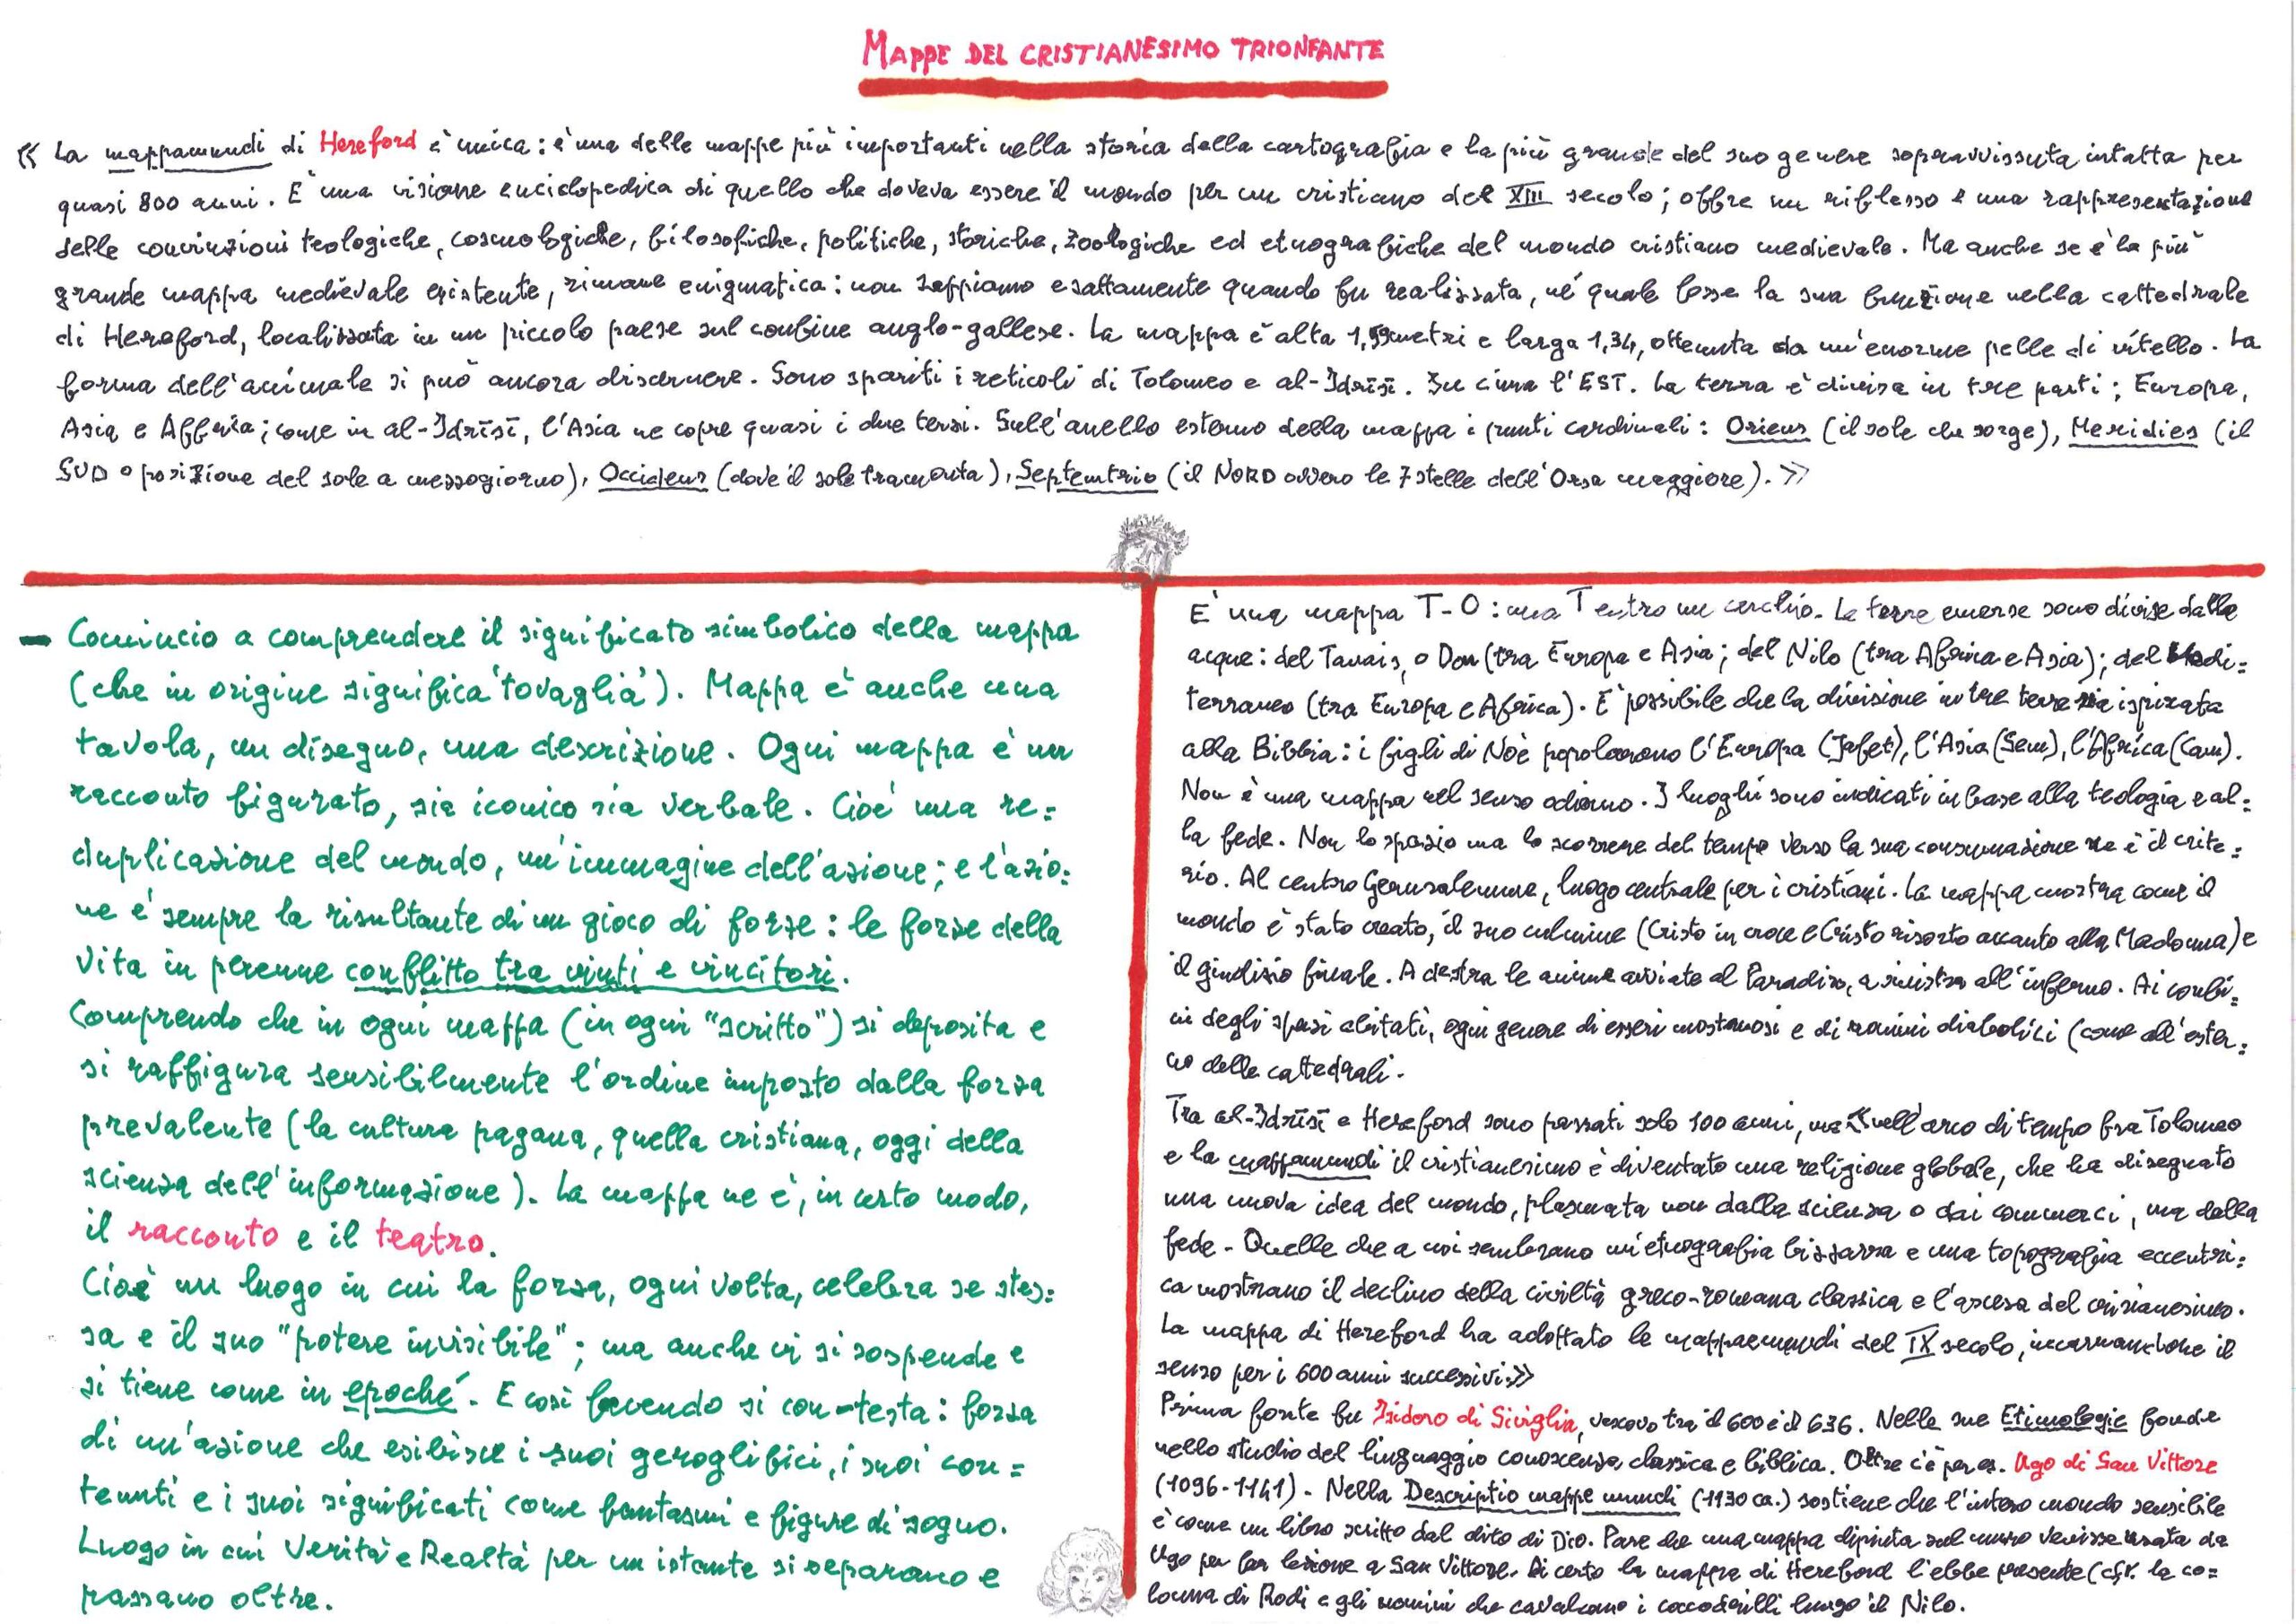 MAPPE DEL CRISTIANESIMO TRIONFANTE
« La mappamundi di Hereford è unica: è una delle mappe più importanti nella storia della cartografia e la più grande del suo genere sopravvissuta intatta per
quasi 800 anni. E' una visione enciclopedica di quello che doveva essere il mondo per un cristiano del XIII secolo; offre un riflesso e una rappresentazione
delle convinzioni teologiche, cosmologiche, filosofiche, politiche, storiche, zoologiche ed etnografiche del mondo cristiano medievale. Ma anche se è la più
grande mappa medievale esistente, rimane enigmatica: non sappiamo esattamente quando fu realizzata, né quale fosse la sua funzione nella cattedrale
di Hereford, localizzata in un piccolo paese sul confine anglo-gallese. La mappa è alta 1,59 metri e larga 1,34, ottenuta da un'enorme pelle di vitello. La
forma dell'animale si può ancora discernere. Sono spariti i reticoli di Tolomeo e al-Idrīsī. In cima l'EST. La terra è divisa in tre parti: Europa,
Asia e Africa; come in al-Idrīsī, l'Asia ne copre quasi i due terzi. Sull'anello esterno della mappa i punti cardinali: Oriens (il sole che sorge), Meridies (il
SUD o posizione del sole a mezzogiorno), Occidens (dove il sole tramonta), Septentrio (il NORD ovvero le 7 stelle dell'Orsa maggiore). »
– Comincio a comprendere il significato simbolico della mappa
(che in origine significa 'tovaglia'). Mappa è anche una
tavola, un disegno, una descrizione. Ogni mappa è un
racconto figurato, sia iconico sia verbale. Cioè una re=
duplicazione del mondo, un'immagine dell'azione; e l'azio=
ne è sempre la risultante di un gioco di forze: le forze della
vita in perenne conflitto tra vinti e vincitori.
Comprendo che in ogni mappa (in ogni "scritto") si deposita e
si raffigura sensibilmente l'ordine imposto dalla forza
prevalente (la cultura pagana, quella cristiana, oggi della
scienza dell'informazione). La mappa ne è, in certo modo,
il racconto e il teatro.
Cioè un luogo in cui la forza, ogni volta, celebra se stes=
sa e il suo "potere invisibile"; ma anche vi si sospende e
si tiene come in epoché. E così facendo si con-testa: forza
di un'azione che esibisce i suoi geroglifici, i suoi con=
tenuti e i suoi significati come fantasmi e figure di sogno.
Luogo in cui Verità e Realtà per un istante si separano e
passano oltre.
E' una mappa T-O: una T entro un cerchio. Le terre emerse sono divise dalle
acque: del Tanais, o Don (tra Europa e Asia; del Nilo (tra Africa e Asia); del Medi=
terraneo (tra Europa e Africa). E' possibile che la divisione in tre terre sia ispirata
alla Bibbia: i figli di Noè popolarono l'Europa (Jafet), l'Asia (Sem), l'Africa (Cam).
Non è una mappa nel senso odierno. I luoghi sono indicati in base alla teologia e al=
la fede. Non lo spazio ma lo scorrere del tempo verso la sua consumazione ne è il crite=
rio. Al centro Gerusalemme, luogo centrale per i cristiani. La mappa mostra come il
mondo è stato creato, il suo culmine (Cristo in croce e Cristo risorto accanto alla Madonna) e
il giudizio finale. A destra le anime avviate al Paradiso, a sinistra all'inferno. Ai confi=
ni degli spazi abitati, ogni genere di esseri mostruosi e di uomini diabolici (come all'ester=
no delle cattedrali.
Tra al-Idrīsī e Hereford sono passati solo 100 anni, ma «nell'arco di tempo fra Tolomeo
e la mappamundi il cristianesimo è diventato una religione globale, che ha disegnato
una nuova idea del mondo, plasmata non dalla scienza o dai commerci, ma dalla
fede. Quelle che a noi sembrano un'etnografia bizzarra e una topografia eccentri=
ca mostrano il declino della civiltà greco-romana classica e l'ascesa del crisianesimo.
La mappa di Hereford ha adottato le mappaemundi del IX secolo, incarnandone il
senso per i 600 anni successivi.»
Prima fonte fu Isidoro di Siviglia, vescovo tra il 600 e il 636. Nelle sue Etimologie fonde
nello studio del linguaggio conoscenza classica e biblica. Oltre c'è per es. Ugo di San Vittore
(1096-1141). Nella Descriptio mappe mundi (1130 ca.) sostiene che l'intero mondo sensibile
è come un libro scritto dal dito di Dio. Pare che una mappa dipinta sul muro venisse usata da
Ugo per far lezione a San Vittore. Di certo la mappa di Hereford l'ebbe presente (cfr. la co=
lonna di Rodi e gli uomini che cavalcano i coccodrilli lungo il Nilo.